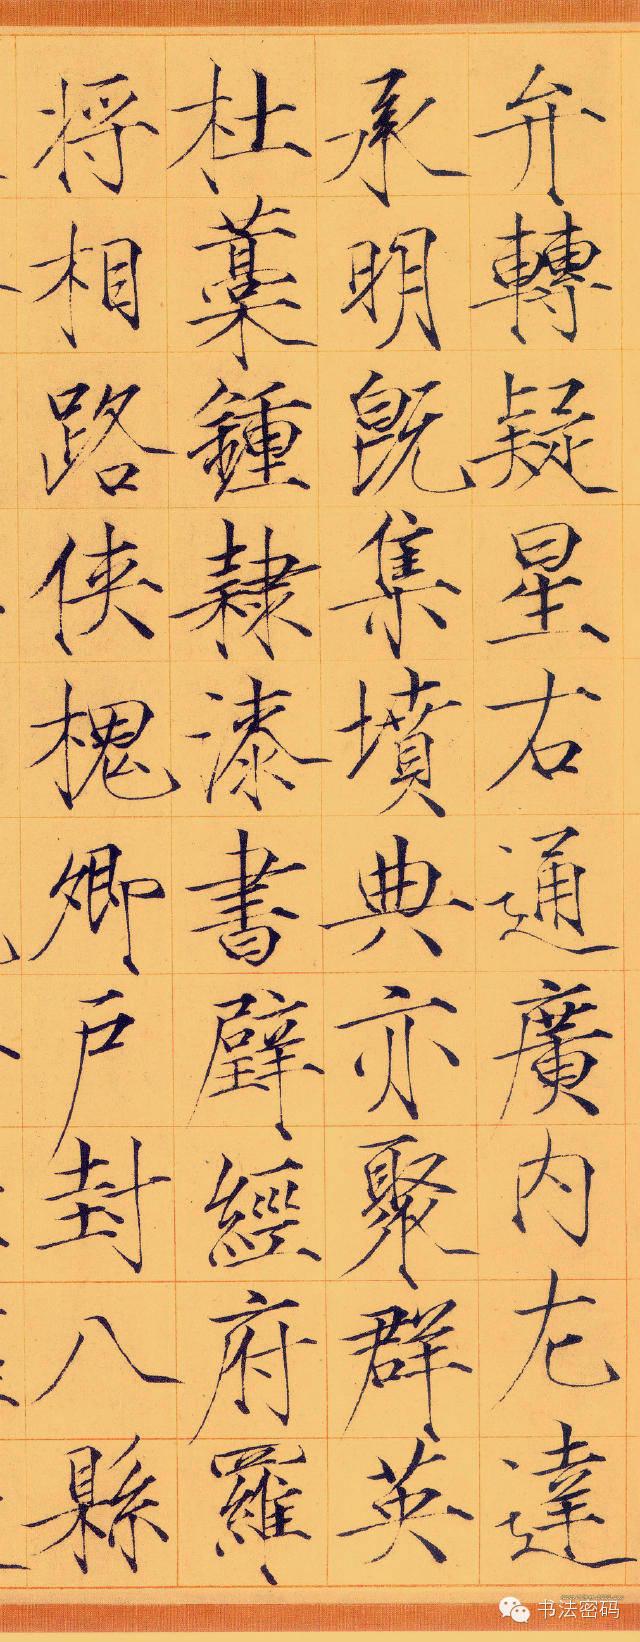 弁轉疑星右通廣内左達
承明既集墳典亦聚群英
杜藁鍾隸漆書壁經府羅
将相路俠槐卿戶封八縣
书法密码